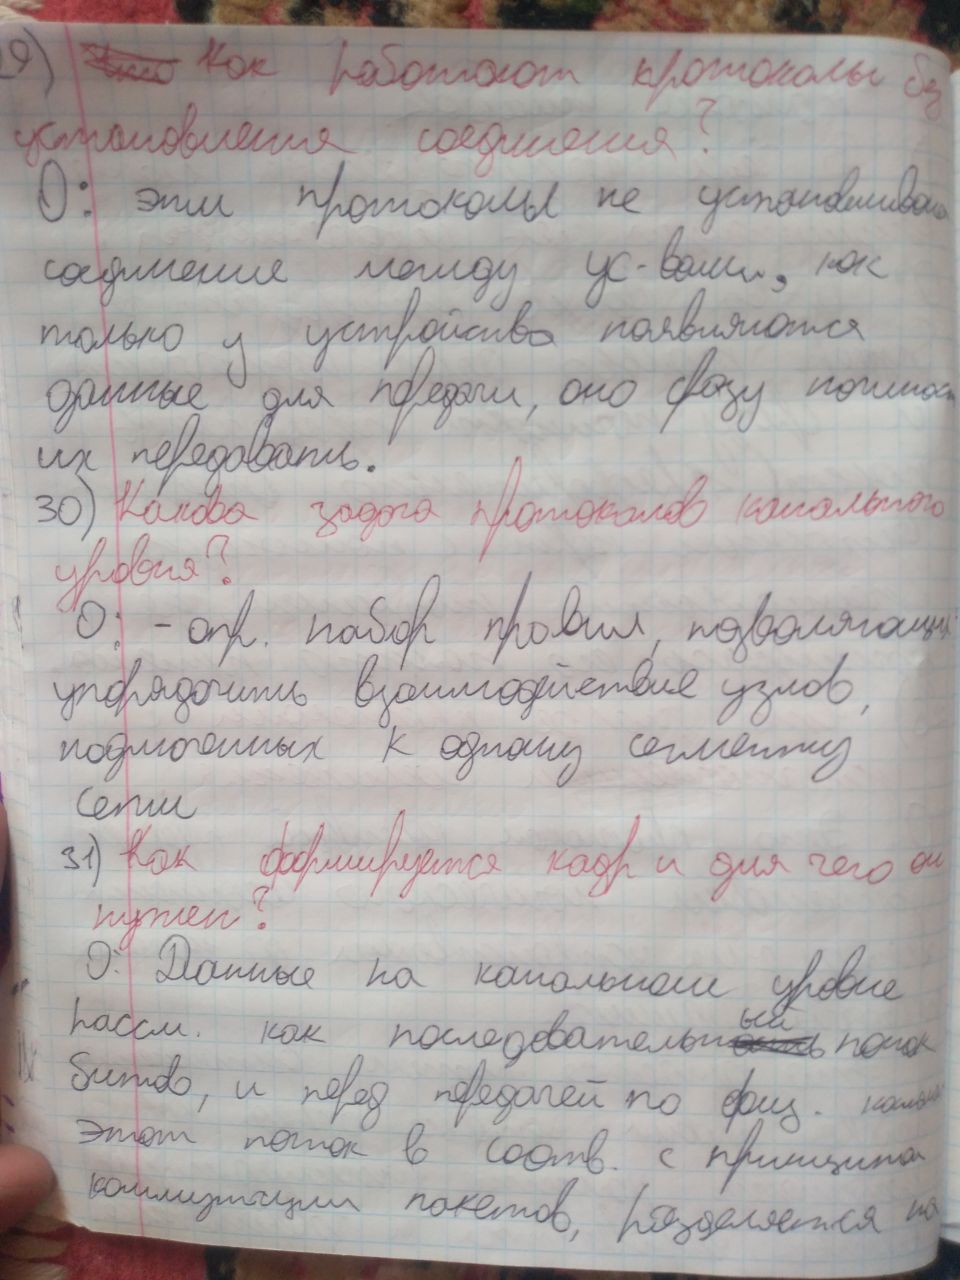 29) Как работают протоколы без
установления соединения?
О: эти протоколы не устанавливают
соединение между ус-вами, как
только у устройства появляются
данные для передачи, оно сразу начинает
их передавать.
30) Какова задача протоколов канального
уровня?
О: - опр. набор правил, позволяющих
упорядочить взаимодействие узлов,
подключенных к одному сегменту
сети
31) Как формируется кадр и для чего он
нужен?
О: Данные на канальном уровне
рассм. как последовательный поток
битов, и перед передачей по физ. каналу
этот поток в соотв. с принципом
коммутации пакетов, разделяется на